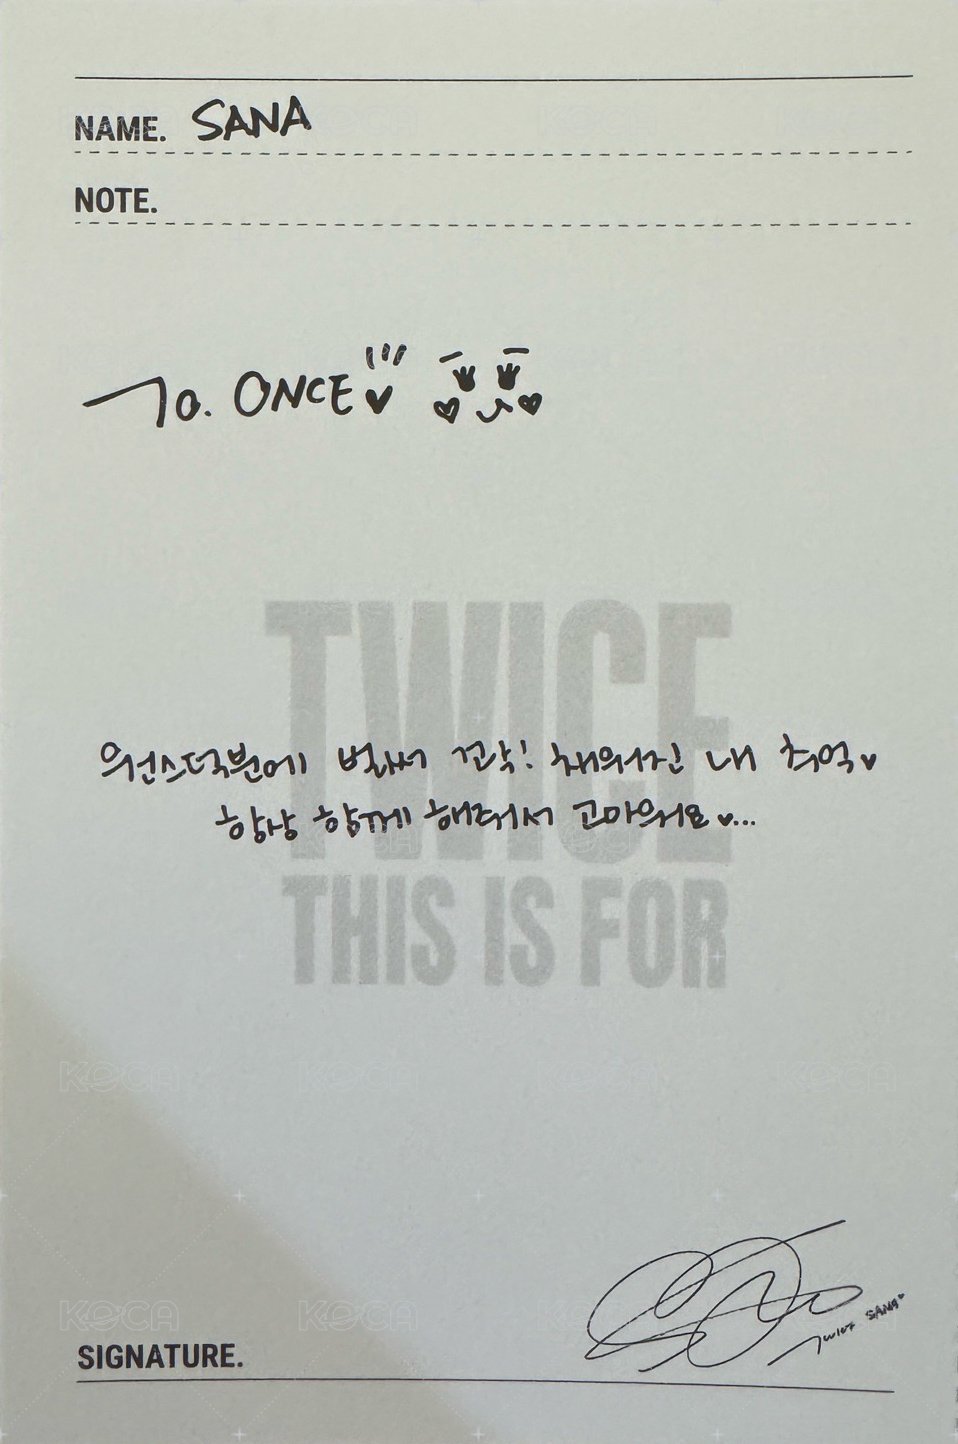 NAME. SANA
NOTE.
To. ONCE
TWICE
원스덕분에 벌써 꽉! 채워진 내 추억♥
항상 함께 해줘서 고마워요♥...
THIS IS FOR
KOCA KOCA KOCA KOCA
KOCA KOCA
SANA
SIGNATURE.